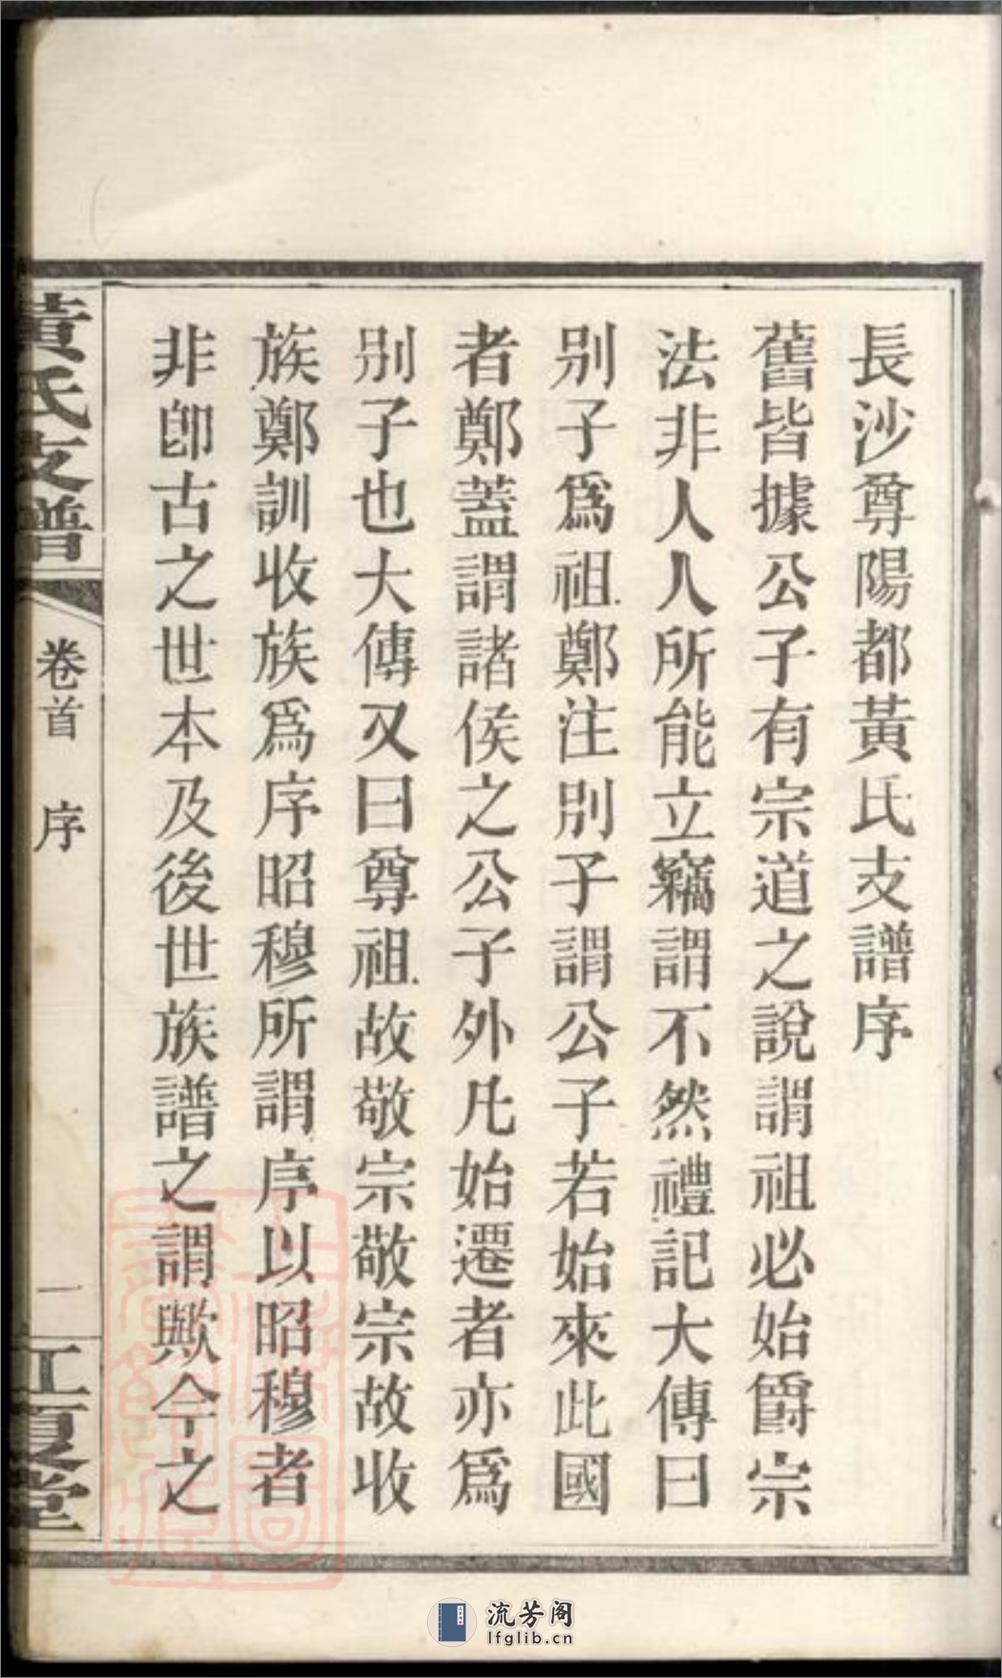 長沙尊陽都黃氏支譜序
舊皆據公子有宗道之說謂祖必始爵宗
法非人人所能立竊謂不然禮記大傳曰
別子爲祖鄭注別子謂公子若始來此國
者鄭蓋謂諸侯之公子外凡始遷者亦爲
別子也大傳又曰尊祖故敬宗敬宗故收
族鄭訓收族爲序昭穆所謂序以昭穆者
非卽古之世本及後世族譜之謂歟今之
黃氏支譜
卷首 序
一
江夏堂
流芳阁
lfglib.cn